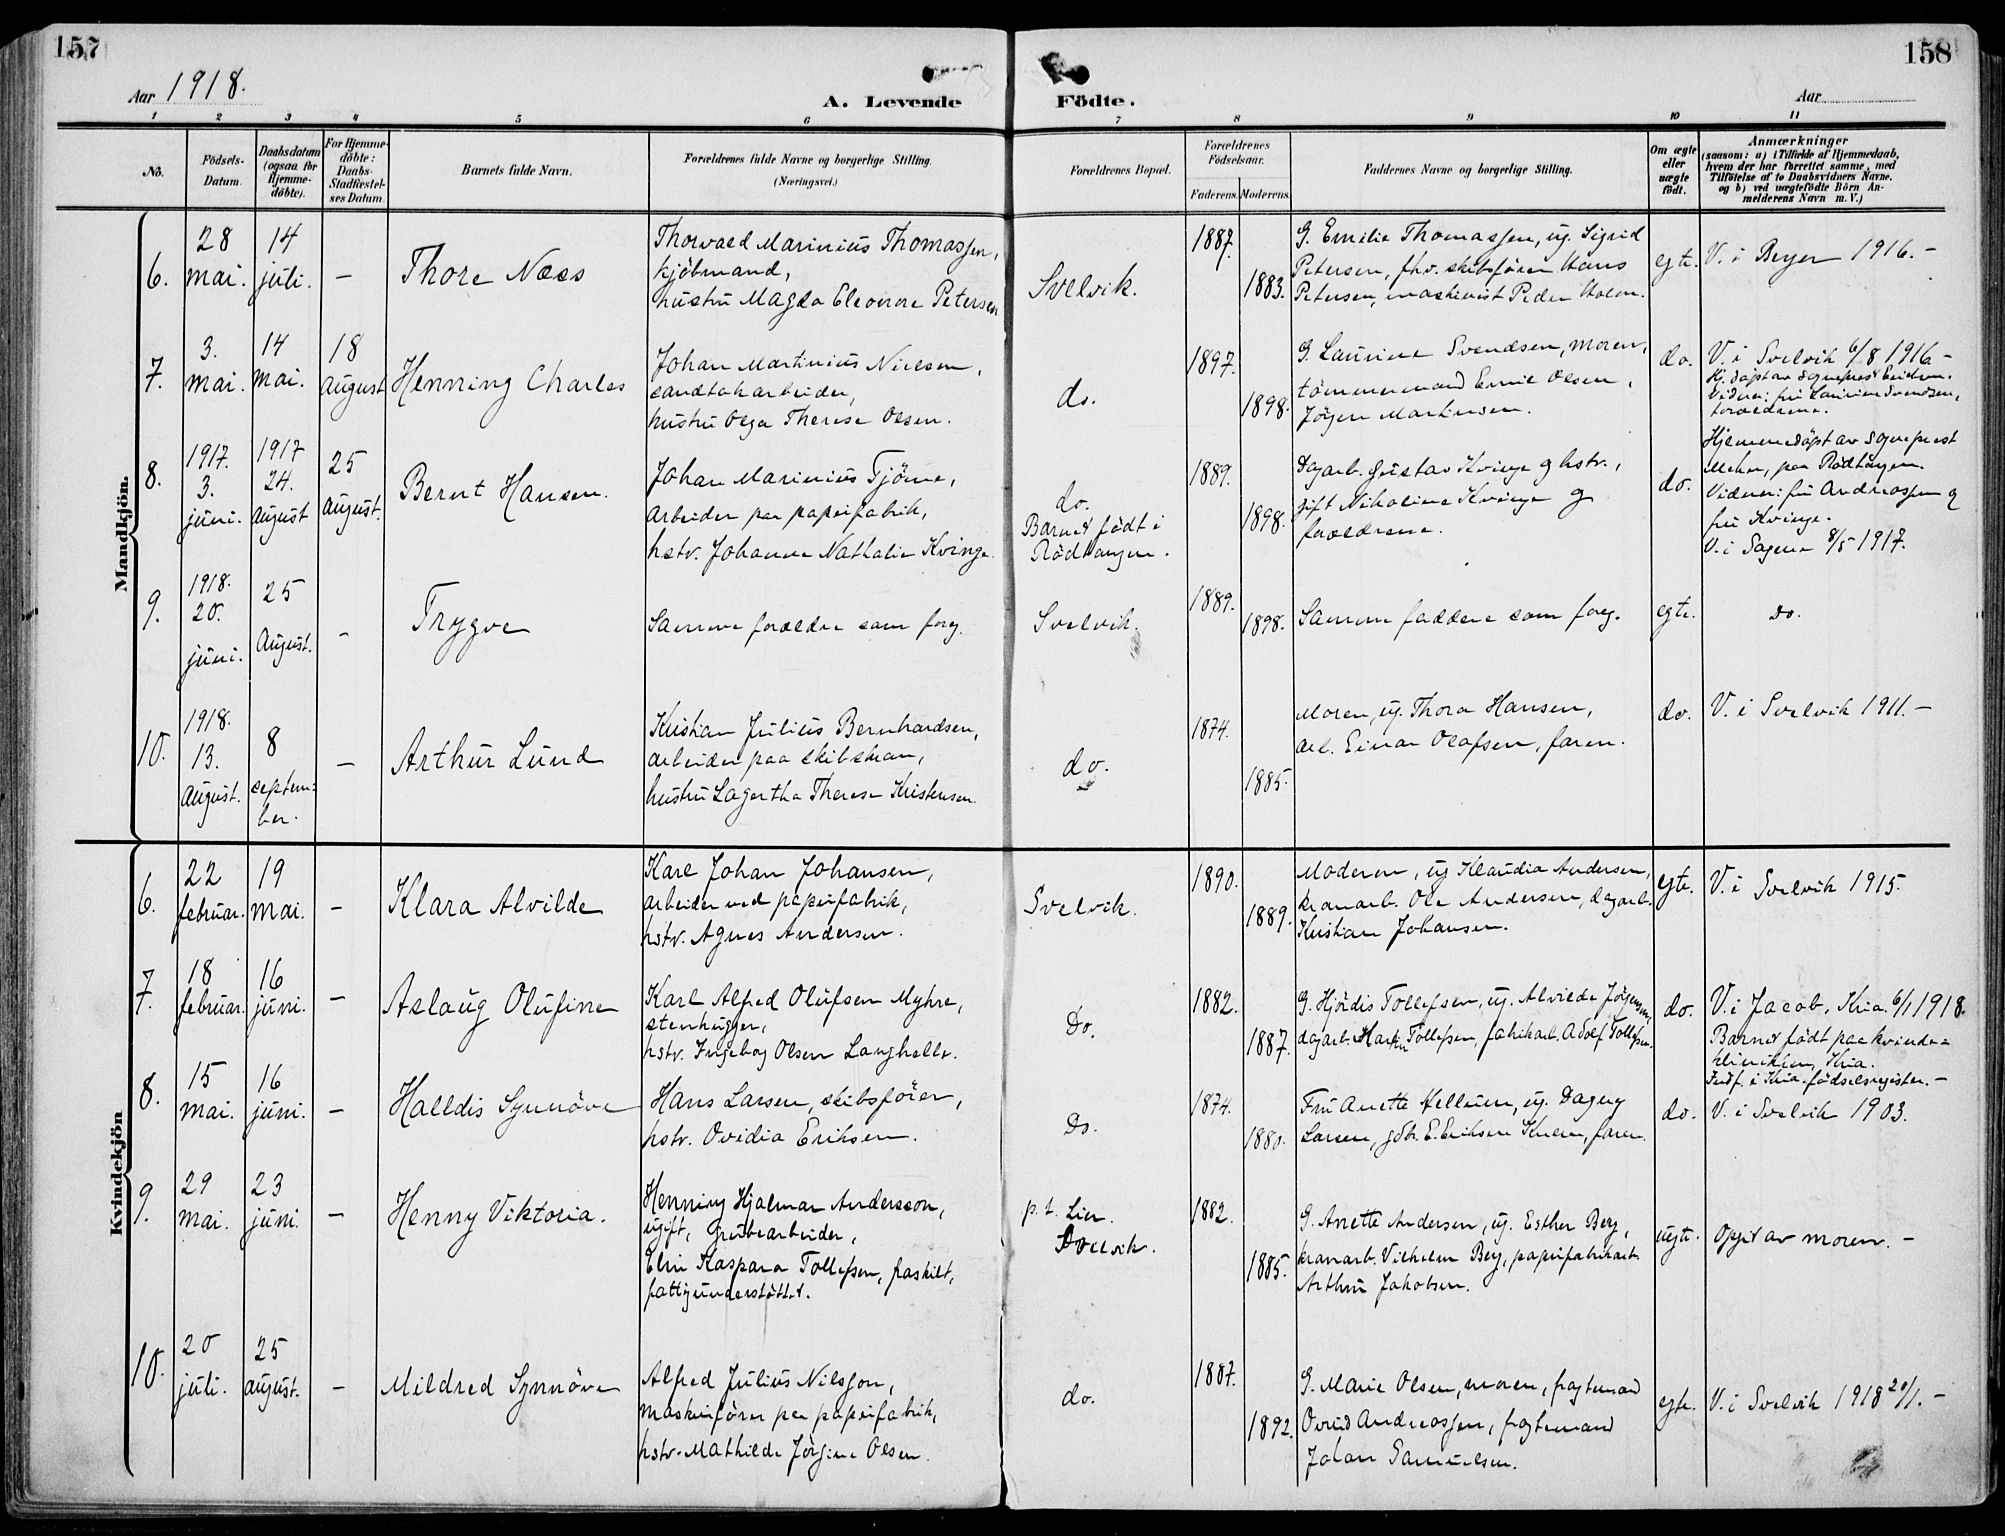 157
158
Aar 1918.
A. Levende Födte.
Aar
1 2 3 4 5 6 7 8 9 10 11
No.
Födsels-
Datum.
Daabsdatum
(ogsaa for
Hjemme-
döbte).
For Hjemme-
döbte:
Daabs-
Stadfæstel-
ses Datum.
Barnets fulde Navn.
Forældrenes fulde Navne og borgerlige Stilling.
(Næringsvei.)
Forældrenes Bopæl.
Forældrenes
Födselsaar.
Faderens. Moderens.
Faddernes Navne og borgerlige Stilling.
Om ægte
eller
uægte
födt.
Anmærkninger
(saasom: a) i Tilfælde af Hjemmedaab,
hvem der har forrettet samme, med
Tilföielse af to Daabsvidners Navne,
og b) ved uægtefödte Börn An-
melderens Navn m. V.)
Mandkjön.
6.
28
mai.
14
juli.
–
Thore Næss
Thorvald Marinius Thomassen,
kjöbmand,
hustru Magda Eleonore Petersen
Svelvik.
1887.
1883.
G. Emilie Thomassen, ug. Sigrid
Petersen, fhv. skibsförer Hans
Petersen, maskinist Peder Holm.
egte.
V. i Beyer 1916.–
7.
3.
mai.
14
mai.
18
august
Henning Charles
Johan Martinius Nielsen,
sandtakarbeider,
hustru Olga Therese Olsen.
do.
1897.
1898.
G. Laurine Svendsen, moren,
tömmermand Emil Olsen,
Jörgen Martinsen.
do.
V. i Svelvik 6/8 1916–
Hj. döpt av sogneprest
Vidner: fru Laurine Svendsen,
forældrene.
8.
1917.
3.
juni.
1917
24.
August
25
August.
Bernt Hansen.
Johan Marinius Tjöme,
arbeider paa papirfabrik,
hstr. Johanne Nathalie Kvinge.
do.
Barnet födt i
Rödtangen.
1889.
1898.
Dagarb. Gustav Kvinge og hstr.,
gift Nikoline Kvinge og
forældrene.
do.
Hjemmedöpt av sogneprest
paa Rödtangen.
Vidner: fru Andreassen og
fru Kvinge.
V. i Sagene 8/5 1917.
9.
1918.
20.
juni.
25
August.
–
Trygve
Samme forældre som foreg.
Svelvik.
1889.
1898.
Samme faddere som foreg.
egte.
do.
10.
1918.
13.
August.
8
septem=
ber.
–
Arthur Lund
Kristian Julius Bernhardsen,
arbeider paa skibskran,
hustru Lagertha Therese Kristensen.
do.
1874.
1885.
Moren, ug. Thora Hansen,
arb. Einar Olafsen, faren.
do.
V. i Svelvik 1911.–
Kvindekjön
6.
22
februar.
19
mai.
–
Klara Alvilde
Karl Johan Johansen,
arbeider ved papirfabrik,
hstr. Agnes Andersen.
Svelvik.
1890.
1889.
Moderen, ug. Klaudia Andersen,
kranarb. Ole Andersen, dagarb.
Kristian Johansen.
egte.
V. i Svelvik 1915.
7.
18
februar.
16
juni.
–
Aslaug Olufine
Karl Alfred Olufsen Myhre,
stenhugger,
hstr. Ingeborg Olsen Langhelle.
Do.
1882.
1887.
G. Hjördis Tollefsen, ug. Alvilde Jörgensen,
dagarb. Martin Tollefsen, fabrikarb. Adolf Tollefsen.
do.
V. i Jacob, Kria. 6/1 1918.
Barnet födt paa kvinde=
klinikken, Kria.
Indf. i Kria. födselsregister.–
8.
15
mai.
16
juni.
–
Halldis Synnöve
Hans Larsen, skibsförer,
hstr. Ovidia Eriksen.
Do.
1874.
1880.
Fru Anette Hellum, ug. Dagny
Larsen, gdbr. E. Eriksen Knem, faren.
do.
V. i Svelvik 1903.
9.
29
mai.
23
juni.
–
Henny Viktoria.
Henning Hjalmar Andersson,
ugift, grubearbeider,
Elin Kaspara Tollefsen, fraskilt,
fattigunderstöttet.
p. t. Lier.
Svelvik.
1882.
1885.
G. Anette Andersen, ug. Esther Berg,
kranarb. Vilhelm Berg, papirfabrikarb.
Arthur Jakobsen.
uegte.
Opgit av moren.–
10.
20
juli.
25
august.
–
Mildred Synnöve
Alfred Julius Nilsson,
maskinförer paa papirfabrik,
hstr. Mathilde Jörgine Olsen.
do.
1887.
1892.
G. Marie Olsen, moren, fragtemand
Ovind Andreassen, fragtemand
Johan Samuelsen.
egte.
V. i Svelvik 1918 20/1.–